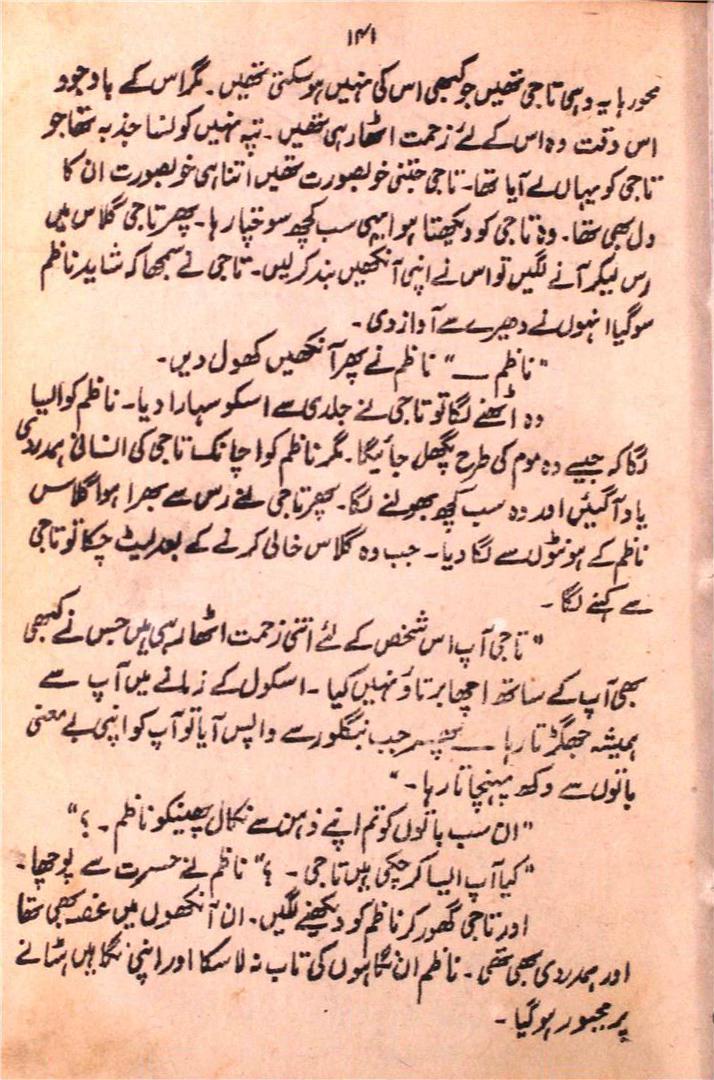 ۱۴۱
محور ہا یہ وہی تاجی تھیں جو کبھی اس کی نہیں ہو سکتی تھیں۔ مگر اس کے باوجود
اس وقت وہ اس کے لئے زحمت اٹھا رہی تھیں۔ پتہ نہیں کونسا جذبہ تھا جو
تاجی کو یہاں لے آیا تھا۔ تاجی جتنی خوبصورت تھیں اتنا ہی خوبصورت ان کا
دل بھی تھا۔ وہ تاجی کو دیکھتا ہوا یہی سب کچھ سوچتا رہا۔ پھر تاجی گلاس میں
رس لیکر آنے لگیں تو اس نے اپنی آنکھیں بند کر لیں۔ تاجی نے سمجھا کہ شاید ناظم
سو گیا انہوں نے دھیرے سے آواز دی۔
"ناظم ــــ" ناظم نے پھر آنکھیں کھول دیں۔
وہ اٹھنے لگا تو تاجی نے جلدی سے اسکو سہارا دیا۔ ناظم کو ایسا
لگا کہ جیسے وہ موم کی طرح پگھل جائیگا۔ مگر ناظم کو اچانک تاجی کی انسانی ہمدردی
یاد آ گئیں اور وہ سب کچھ بھولنے لگا۔ پھر تاجی نے رس سے بھرا ہوا گلاس
ناظم کے ہونٹوں سے لگا دیا۔ جب وہ گلاس خالی کرنے کے بعد لیٹ چکا تو تاجی
سے کہنے لگا۔
"تاجی آپ اس شخص کے لئے اتنی زحمت اٹھا رہی ہیں جس نے کبھی
بھی آپ کے ساتھ اچھا برتاؤ نہیں کیا۔ اسکول کے زمانے میں آپ سے
ہمیشہ جھگڑتا رہا ــــ پھر جب بنگلور سے واپس آیا تو آپ کو اپنی بے معنی
باتوں سے دکھ پہنچاتا رہا۔"
"ان سب باتوں کو تم اپنے ذہن سے نکال پھینکو ناظم ۔ ؟"
"کیا آپ ایسا کر چکی ہیں تاجی ۔ ؟" ناظم نے حسرت سے پوچھا۔
اور تاجی گھور کر ناظم کو دیکھنے لگیں۔ ان آنکھوں میں غصہ بھی تھا
اور ہمدردی بھی تھی۔ ناظم ان نگاہوں کی تاب نہ لا سکا اور اپنی نگاہیں ہٹانے
پر مجبور ہو گیا۔